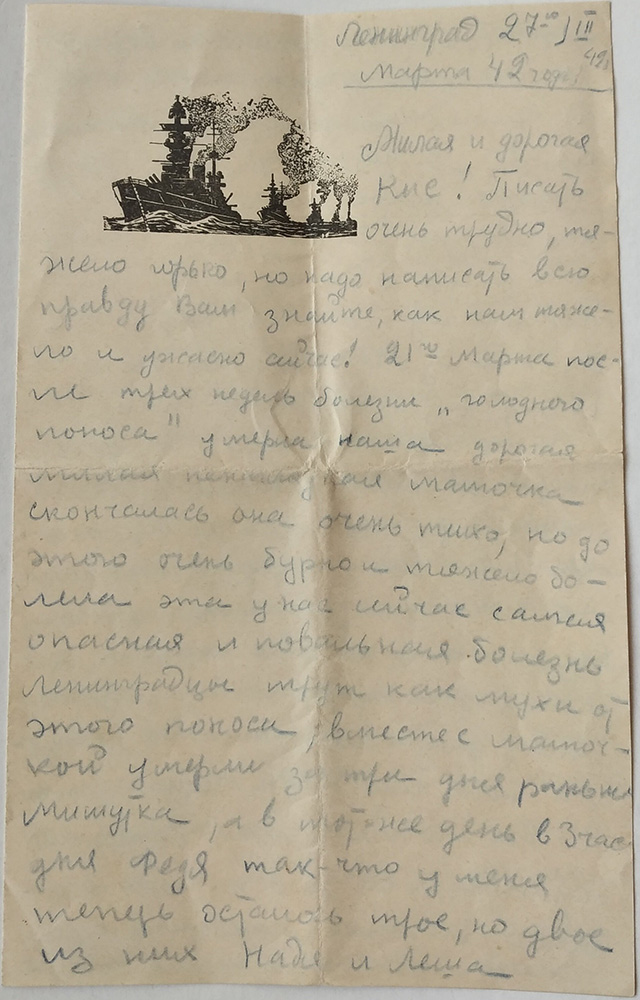 Ленинград 27го III
Марта 42 года 42
Милая и дорогая
Кис! Писать
очень трудно, тя-
жело горько, но надо написать всю
правду Вам знайте, как нам тяже-
ло и ужасно сейчас! 21го Марта пос-
ле трех недель болезни „голодного
поноса" умерла наша дорогая
милая маточка
скончалась она очень тихо, но до
этого очень бурно и тяжело бо-
лела эта у нас сейчас самая
опасная и повальная болезнь
Ленинградцы мрут как мухи от
этого поноса, вместе с маточ-
кой умерли за три дня раньше
Мишутка, а в тот-же день в 3 час
дня Федя так-что у меня
теперь осталось трое, но двое
из них Надя и Леша